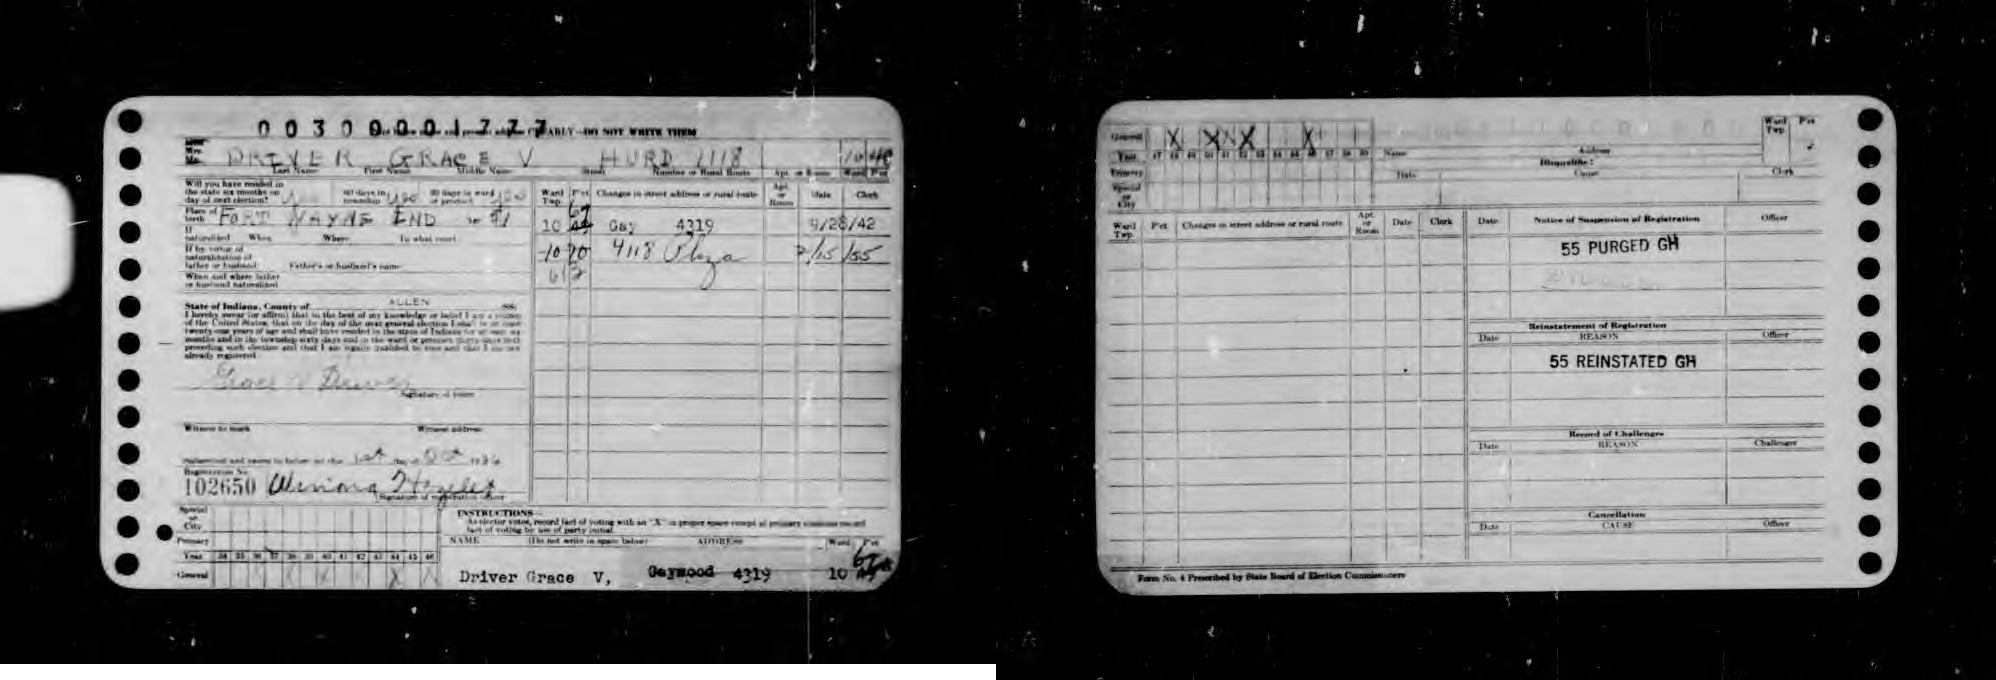 00300001777
CLEARLY—DO NOT WRITE THEM
Mrs. DRIVER GRACE V HURD 1118
Last Name First Name Middle Name Street Number or Rural Route Apt. or Room Ward P'ct
Will you have resided in
the state six months on
day of next election?
60 days in
township yes
30 days in ward
or precinct yes
Place of
birth FORT WAYNE IND
If
naturalized When Where In what court
If by virtue of
naturalization of
father or husband Father's or husband's name
When and where father
or husband naturalized
State of Indiana, County of ALLEN SS:
I hereby swear (or affirm) that to the best of my knowledge or belief I am a citizen
of the United States, that on the day of the next general election I shall be at least
twenty-one years of age and shall have resided in the state of Indiana for at least six
months and in the township sixty days and in the ward or precinct thirty days next
preceding such election and that I am legally qualified to vote and that I am not
already registered
Grace V Driver
Signature of voter
Witness to mark Witness address
Subscribed and sworn to before me this 1st day of Oct
Registration No.
102650 Winona
Signature of registration officer
Ward Twp. P'ct Changes in street address or rural route Apt. or Room Date Clerk
67
10 Gay 4319 9/28/42
10 70 4118 Plaza 2/15/55
612
Special
or
City
Primary
Year 34 35 36 37 38 39 40 41 42 43 44 45 46
General X
INSTRUCTIONS—
As elector votes, record fact of voting with an "X" in proper space except at primary elections record
fact of voting by use of party initial.
NAME (Do not write in space below) ADDRESS Ward P'ct
Driver Grace V, Gaywood 4319 10 67
General X X X X X
Year 47 48 49 50 51 52 53 54 55 56 57 58 59
Primary
Special
or
City
Name Address
Ward
Twp. P'ct
Disqualified:
Date Cause Clerk
Ward
Twp. P'ct Changes in street address or rural route Apt.
or
Room Date Clerk
Date Notice of Suspension of Registration Officer
55 PURGED GH
Reinstatement of Registration
Date REASON Officer
55 REINSTATED GH
Record of Challenges
Date REASON Challenger
Cancellation
Date CAUSE Officer
Form No. 4 Prescribed by State Board of Election Commissioners